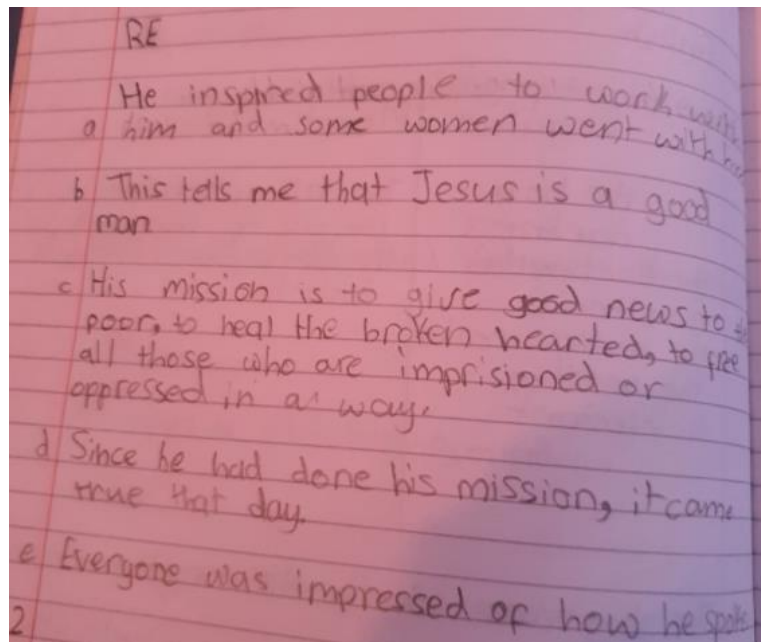 RE
He inspired people to work with
a him and some women went with him
b This tells me that Jesus is a good
man
c His mission is to give good news to
poor, to heal the broken hearted, to free
all those who are imprisioned or
oppressed in a way.
d Since he had done his mission, it came
true that day.
e Everyone was impressed of how he spoke
2